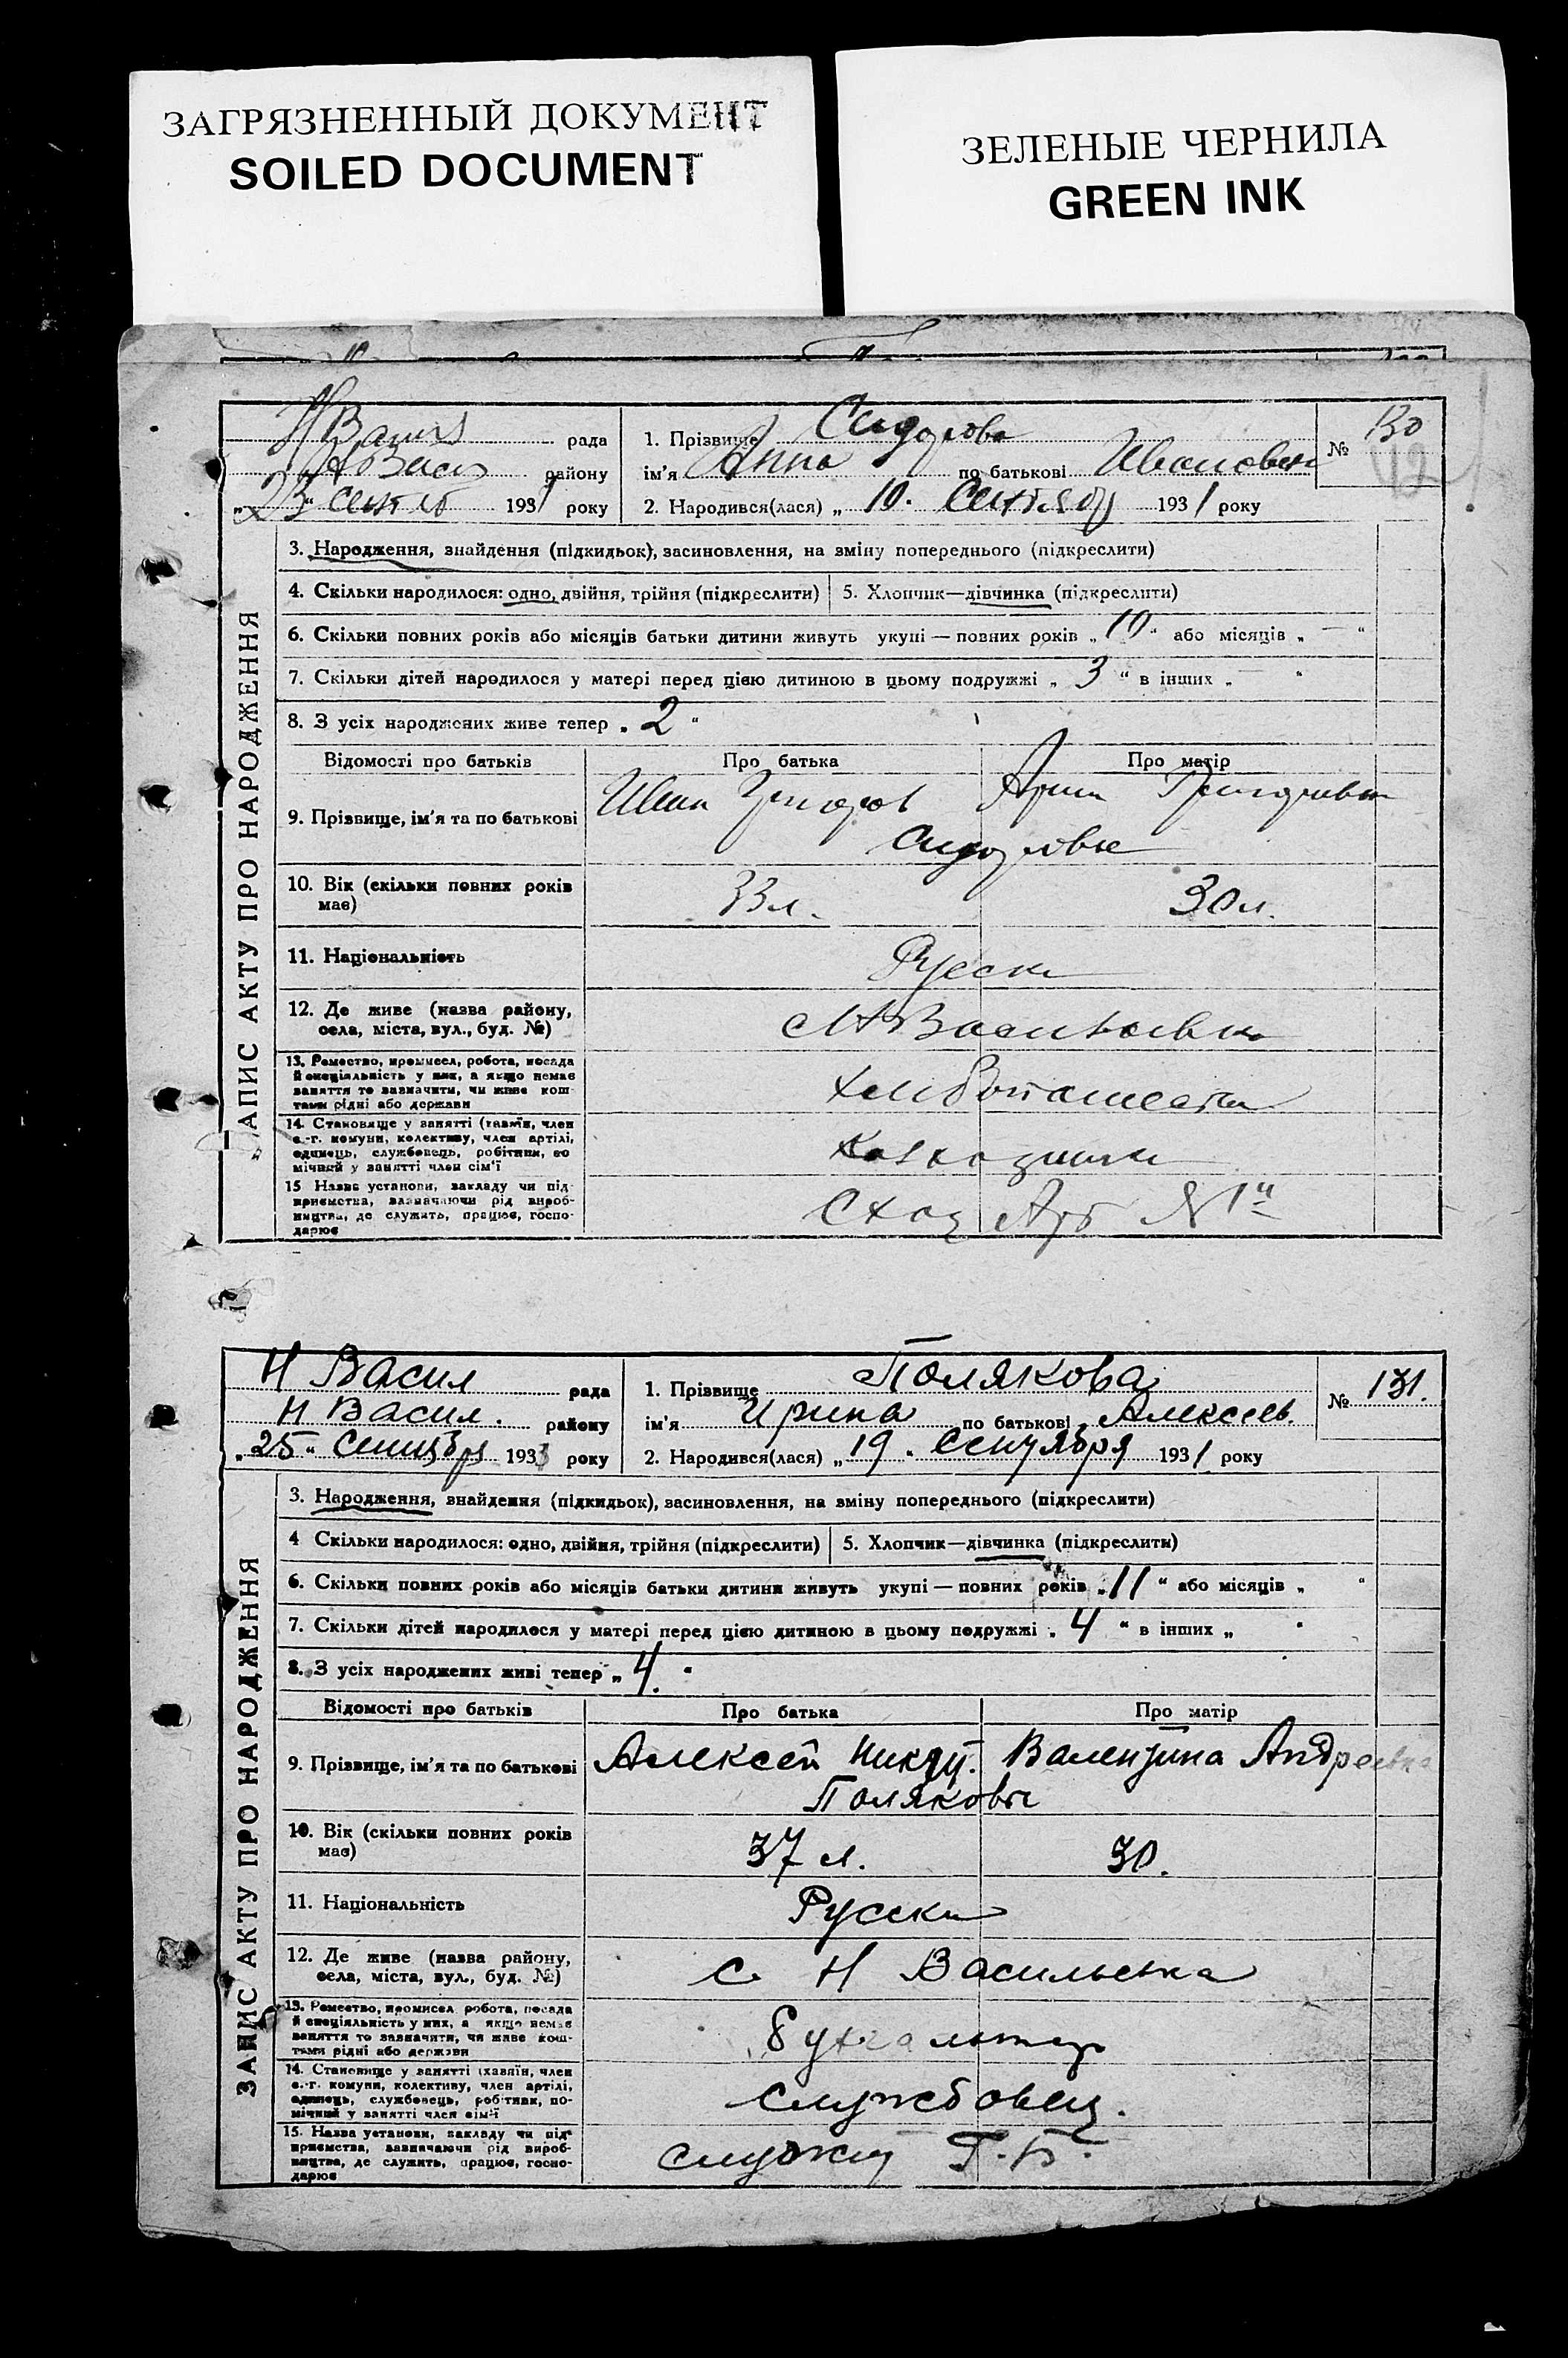 ЗАГРЯЗНЕННЫЙ ДОКУМЕНТ
SOILED DOCUMENT
ЗЕЛЕНЫЕ ЧЕРНИЛА
GREEN INK
рада
району
„23“ 1931 року
1. Прізвище Сидорова
ім'я Анна по батькові Ивановна
2. Народився(лася) „10. 1931 року
№ 130
12
ЗАПИС АКТУ ПРО НАРОДЖЕННЯ
3. Народження, знайдення (підкидьок), засиновлення, на зміну попереднього (підкреслити)
4. Скільки народилося: одно, двійня, трійня (підкреслити) 5. Хлопчик—дівчинка (підкреслити)
6. Скільки повних років або місяців батьки дитини живуть укупі — повних років „10“ або місяців „—“
7. Скільки дітей народилося у матері перед цією дитиною в цьому подружжі „3“ в інших „ “
8. З усіх народжених живе тепер „2“
Відомості про батьків Про батька Про матір
9. Прізвище, ім'я та по батькові Иван Григоров Арина Григорьевна
Сидоровы
10. Вік (скільки повних років має) 33 л. 30 л.
11. Національність Русски
12. Де живе (назва району, села, міста, вул., буд. №) Н Васильевка
13. Ремество, промисел, робота, посада
й спеціяльність у них, а якщо немає
заняття то зазначити, чи живе кош-
тами рідні або держави
14. Становище у занятті (хазяїн, член
с.-г. комуни, колективу, член артілі,
одинець, службовець, робітник, по-
мічний у занятті член сім'ї
15 Назва установи, закладу чи під-
приємства, зазначаючи рід вироб-
ництва, де служить, працює, госпо-
дарює
Н Васил рада
Н Васил. району
„25“ 1931 року
1. Прізвище Полякова
ім'я Ирина по батькові Алексеев.
2. Народився(лася) „19. Сентября 1931 року
№ 131.
ЗАПИС АКТУ ПРО НАРОДЖЕННЯ
3. Народження, знайдення (підкидьок), засиновлення, на зміну попереднього (підкреслити)
4 Скільки народилося: одно, двійня, трійня (підкреслити) 5. Хлопчик—дівчинка (підкреслити)
6. Скільки повних років або місяців батьки дитини живуть укупі — повних років „11“ або місяців „ “
7. Скільки дітей народилося у матері перед цією дитиною в цьому подружжі „4“ в інших „ “
8. З усіх народжених живі тепер „4.“
Відомості про батьків Про батька Про матір
9. Прізвище, ім'я та по батькові Алексей Никит. Валентина Андреевна
Поляковы
10. Вік (скільки повних років має) 37 л. 30.
11. Національність Русски
12. Де живе (назва району, села, міста, вул., буд. №) с. Н Васильевка
13. Ремество, промисел робота, посада
й спеціяльність у них, а якщо немає
заняття то зазначити, чи живе кош-
тами рідні або держави
бухгалтер
14. Становище у занятті (хазяїн, член
с.-г. комуни, колективу, член артілі,
одинець, службовець, робітник, по-
мічний у занятті член сім'ї
службовец.
15. Назва установи, закладу чи під-
приємства, зазначаючи рід вироб-
ництва, де служить, працює, госпо-
дарює